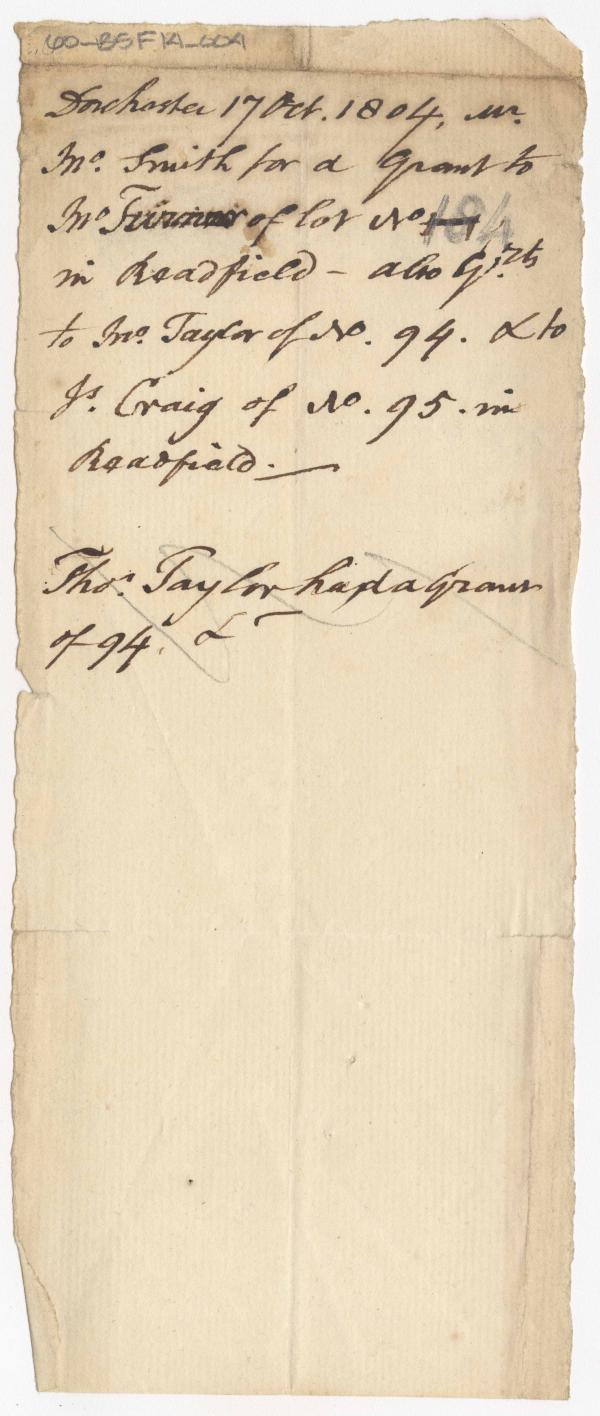 60-B5F14-004
Dorchester 17 Oct. 1804, Mr.
Jno. Smith for a Grant to
Jno of lot No 184
in Readfield - also G.ts
to Jno. Taylor of No. 94. & to
Js. Craig of No. 95. in
Readfield. —
Thos. Taylor had a Grant
of 94. &